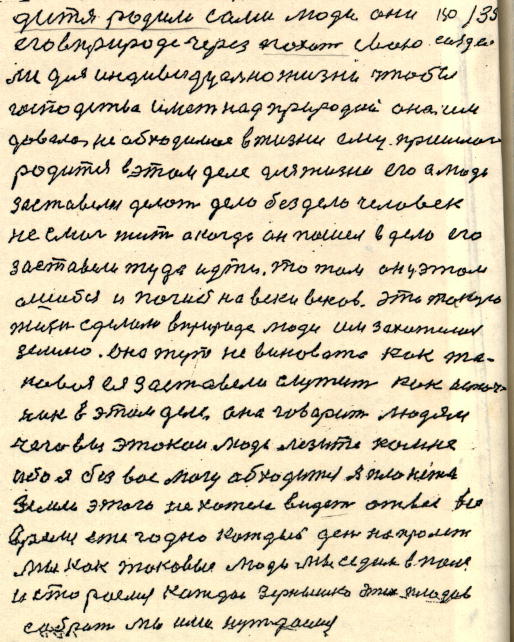 дитя родили сами люди они 150 135
его в природе через похоть свою создал
ли для индивидуално жизни чтобы
господства имет над природай она им
довала, не абходимое в жизни ему пришлос
родится в этом деле для жизни его а люди
заставели делат дело без дело человек
не смог жит а когда он пошел в дело его
заставели туда идти. то там он у этом
ошибся и погиб на веки веков. это такую
жизн сделали в природе люди им захателас
землю. она тут не виновата как та-
ковая ея заставели служит как источ-
ник в этом деле, она говарит людям
чего вы этокаи люди лезите ко мне
ибо я без вас могу абходится я планета
Земля этого не хотела видет от вас все
время ежегодно каждый ден напролет
мы как таковые люди мы седим в поле
и стораемся каждае зернышко этих плодов
сабрат мы ими нуждаемся